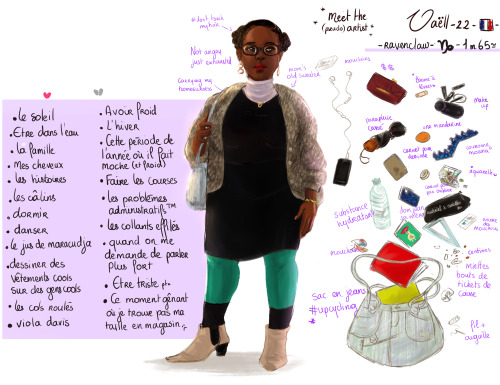 Meet the
(pseudo) artist
Vaëll - 22 -
- Ravenclaw - ♑ - 1m65 -
#don't touch
my hair
Not angry
just exhausted
Carrying my
homeworks
mom's
old sweater
mouchoirs
$$
Baume à
lèvres
make
up
parapluie
cassé
une mandarine
carnet pour
écrire
couronne
aquarelle
substance
hydratante
mouchoir
centimes
miettes
bouts de
tickets de
caisse
sac en jeans
#upcycling
fil +
aiguille
• le soleil
• Etre dans l'eau
• la famille
• Mes cheveux
• les histoires
• les câlins
• dormir
• danser
• le jus de maracudja
• dessiner des
vêtements cools
sur des gens cools
• les cols roulés
• viola davis
• Avoir froid
• L'hiver
• Cette période de
l'année où il fait
moche (et froid)
• Faire les courses
• les problèmes
administratifs™
• les collants effilés
• quand on me
demande de parler
plus fort
• Etre triste
• Ce moment gênant
où je trouve pas ma
taille en magasin